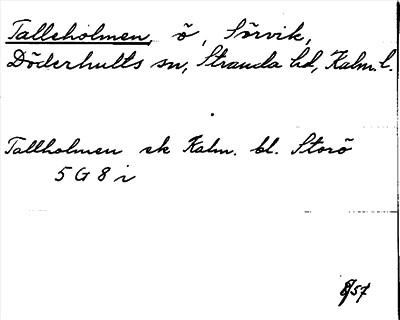 Talleholmen, ö, Sörvik,
Döderhults sn, Stranda hd, Kalm. l.
Tallholmen ek Kalm. bl. Storö
5 G 8 i
8/57